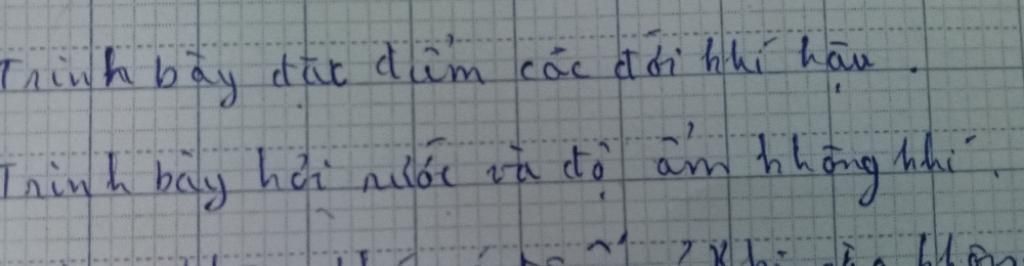 Trình bày đặc điểm các đới khí hậu.
Trình bày hơi nước và độ ẩm không khí.